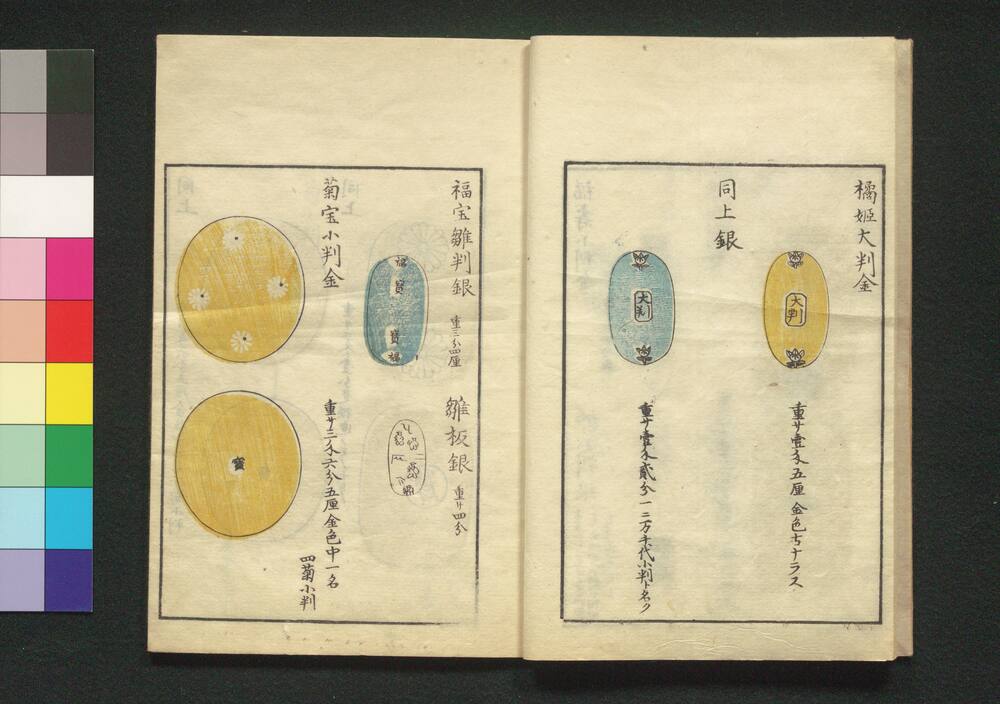 橘姫大判金
大判
重サ壹匁五厘 金色モナラス
同上銀
大判
重サ壹匁貳分 一ニ万千代小判ト名ク
福宝雛判銀 重三分四厘
福寳
寳福
雛板銀 重サ四分
菊宝小判金
寳
重サ三匁六分五厘 金色中 一名
四菊小判